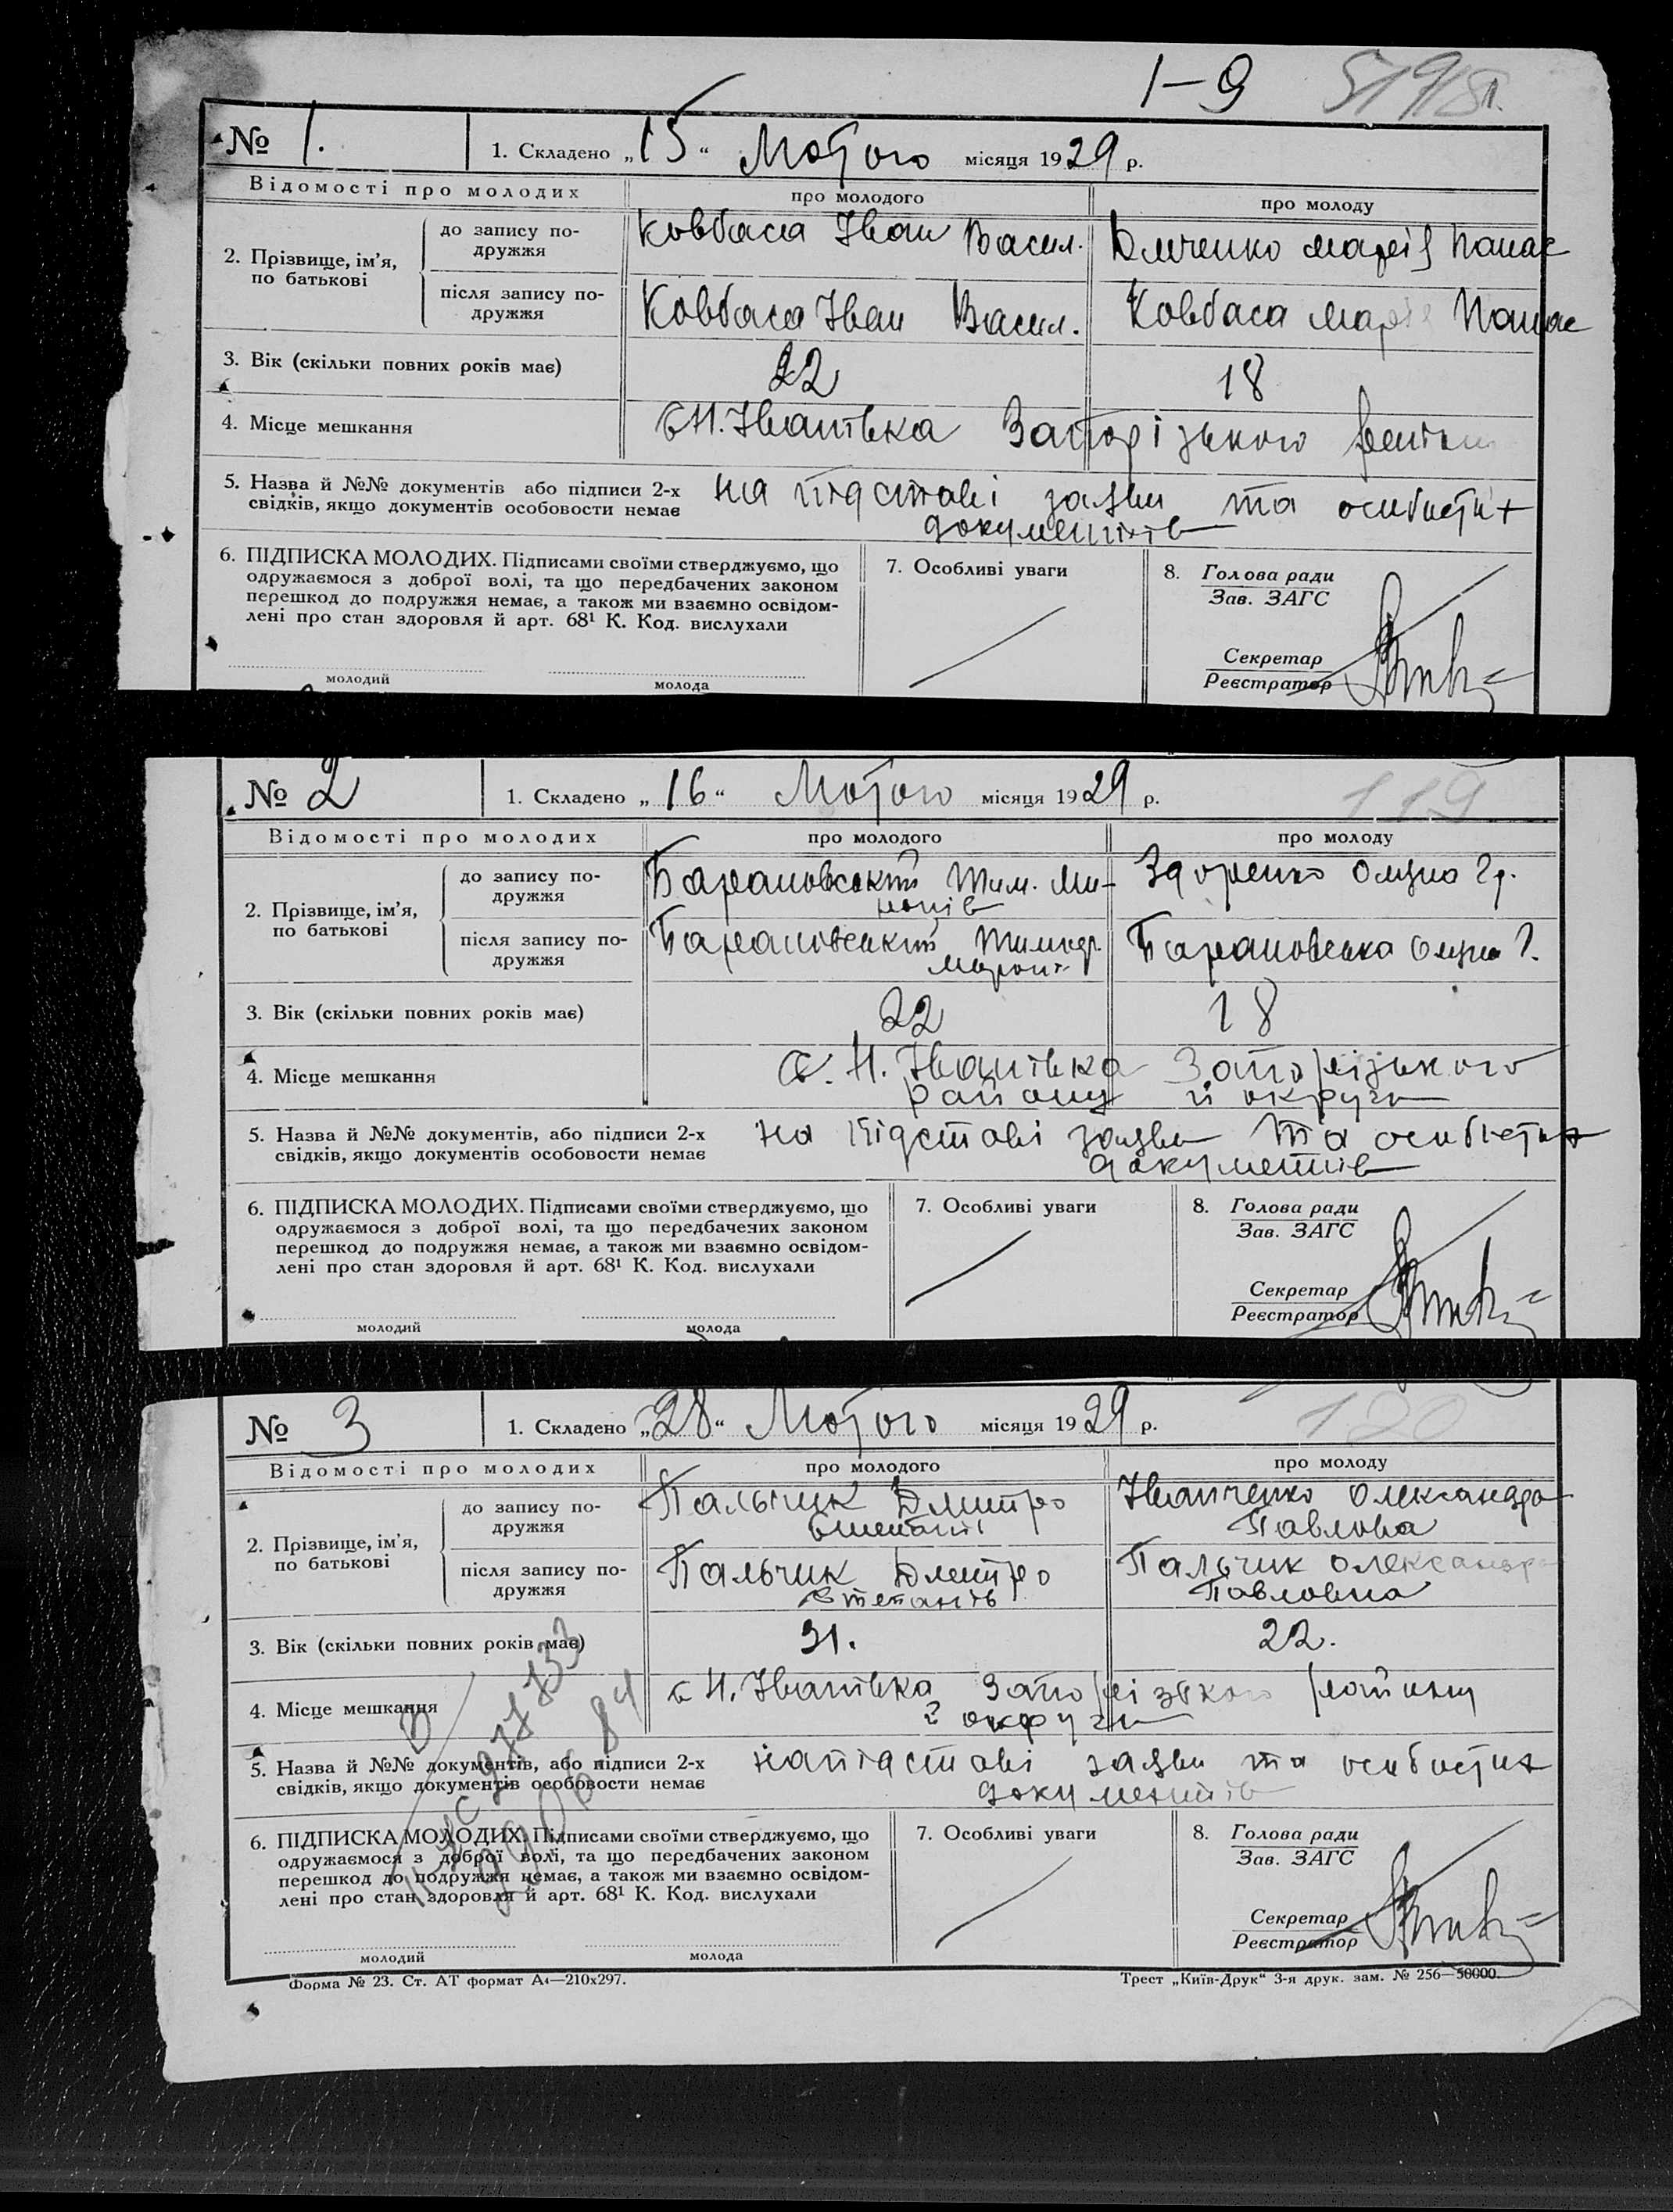 1-9
№ 1. 1. Складено „15“ Лютого місяця 1929 р.
Відомості про молодих про молодого про молоду
2. Прізвище, ім’я, по батькові
до запису подружжя Ковбаса Іван Васил. Марія Панас
після запису подружжя Ковбаса Іван Васил. Ковбаса Марія Панас
3. Вік (скільки повних років має) 22 18
4. Місце мешкання с Н. Іванівка Запорізького
5. Назва й №№ документів або підписи 2-х на підставі заяви та особистих
свідків, якщо документів особовости немає документів
6. ПІДПИСКА МОЛОДИХ. Підписами своїми стверджуємо, що
одружаємося з доброї волі, та що передбачених законом
перешкод до подружжя немає, а також ми взаємно освідом-
лені про стан здоровля й арт. 68¹ К. Код. вислухали
молодий молода
7. Особливі уваги
8. Голова ради
Зав. ЗАГС
Секретар
Реєстратор
№ 2 1. Складено „16“ Лютого місяця 1929 р. 119
Відомості про молодих про молодого про молоду
2. Прізвище, ім’я, по батькові
до запису подружжя Барановський Тим. Ми- Здоренко Олена Гр.
після запису подружжя Барановський Барановська Олена Г.
3. Вік (скільки повних років має) 22 18
4. Місце мешкання с. Н. Іванівка Запорізького
району й округи
5. Назва й №№ документів, або підписи 2-х на підставі заяви та особистих
свідків, якщо документів особовости немає документів
6. ПІДПИСКА МОЛОДИХ. Підписами своїми стверджуємо, що
одружаємося з доброї волі, та що передбачених законом
перешкод до подружжя немає, а також ми взаємно освідом-
лені про стан здоровля й арт. 68¹ К. Код. вислухали
молодий молода
7. Особливі уваги
8. Голова ради
Зав. ЗАГС
Секретар
Реєстратор
№ 3 1. Складено „28“ Лютого місяця 1929 р. 120
Відомості про молодих про молодого про молоду
2. Прізвище, ім’я, по батькові
до запису подружжя Пальчик Дмитро Степанів Іванченко Олександра Павловна
після запису подружжя Пальчик Дмитро Степанів Пальчик Олександра Павловна
3. Вік (скільки повних років має) 31. 22.
4. Місце мешкання с Н. Іванівка Запорізького району
й округи
5. Назва й №№ документів, або підписи 2-х на підставі заяви та особистих
свідків, якщо документів особовости немає документів
6. ПІДПИСКА МОЛОДИХ. Підписами своїми стверджуємо, що
одружаємося з доброї волі, та що передбачених законом
перешкод до подружжя немає, а також ми взаємно освідом-
лені про стан здоровля й арт. 68¹ К. Код. вислухали
молодий молода
7. Особливі уваги
8. Голова ради
Зав. ЗАГС
Секретар
Реєстратор
Форма № 23. Ст. АТ формат А₄—210x297. Трест „Київ-Друк“ 3-я друк. зам. № 256—50000.